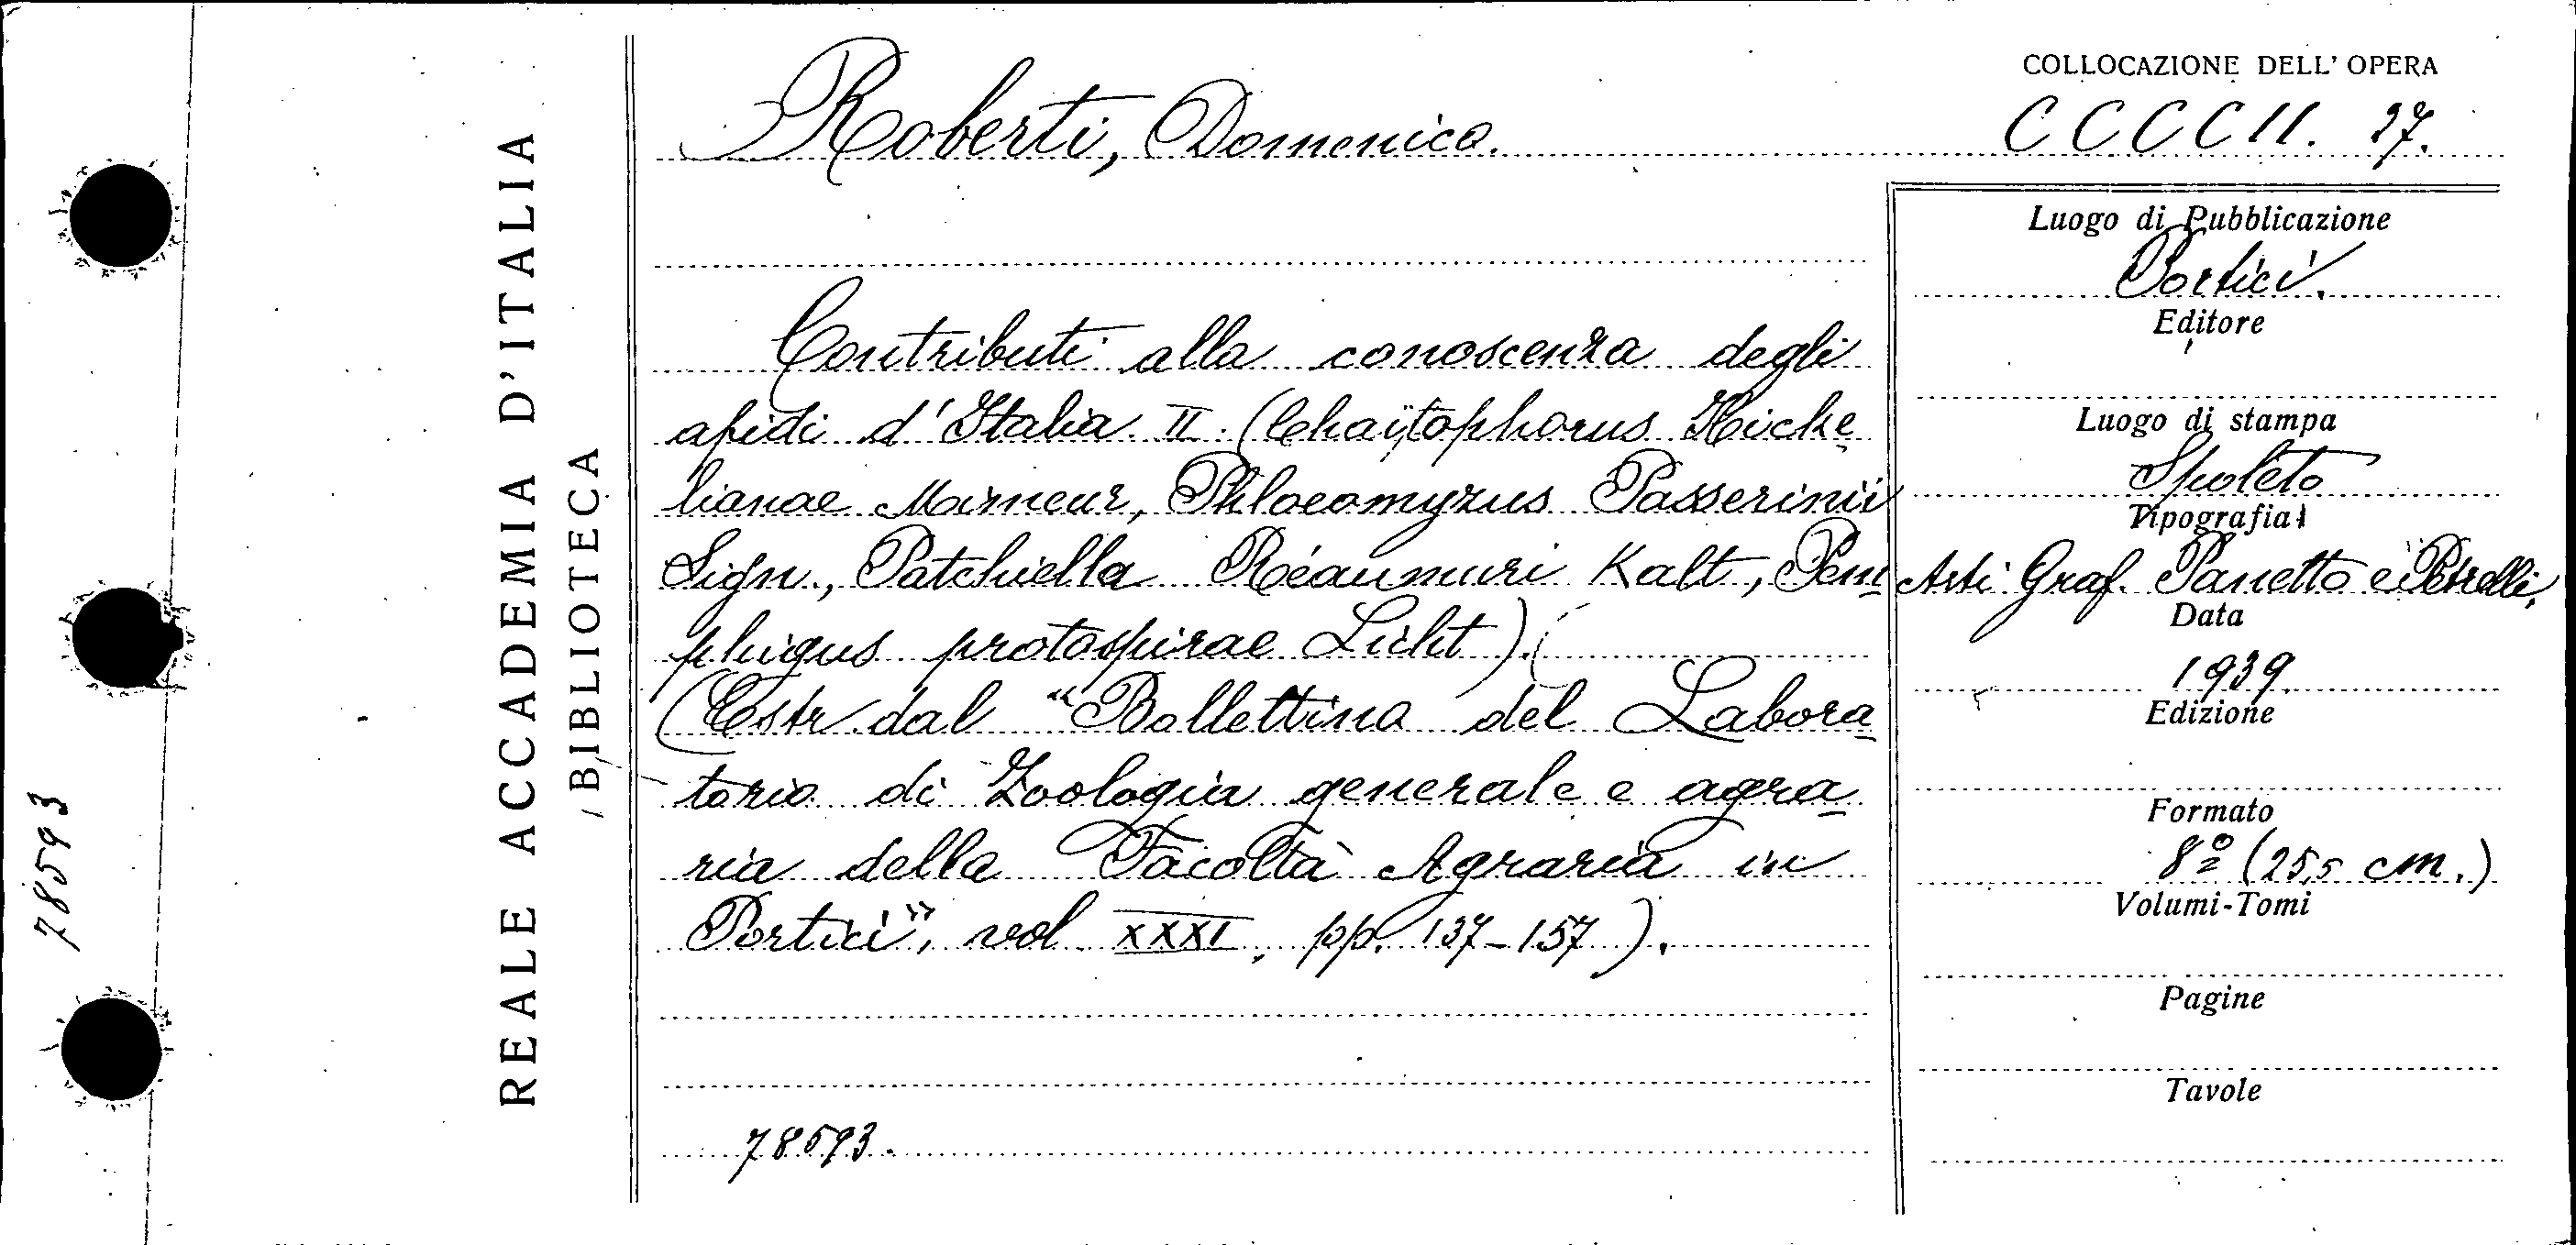 COLLOCAZIONE DELL' OPERA
CCCCII. 27.
Roberti, Domenico.
Contributi alla conoscenza degli
afidi d'Italia II. (Chaïtophorus Hiche
lianae Mimeur, Phloeomyzus Passerinii
Sign., Patchiella Réaumuri Kalt, Pem
phigus protospirae Licht).
(Estr. dal "Bollettino del Labora
torio di Zoologia generale e agra
ria della Facoltà Agraria in
Portici", vol XXXI, pp. 137-157).
78593.
Luogo di Pubblicazione
Portici.
Editore
Luogo di stampa
Spoleto
Tipografia
Arti Graf. Panetto e Petrelli.
Data
1939.
Edizione
Formato
8º (25,5 cm.)
Volumi-Tomi
Pagine
Tavole
REALE ACCADEMIA D'ITALIA
BIBLIOTECA
78593